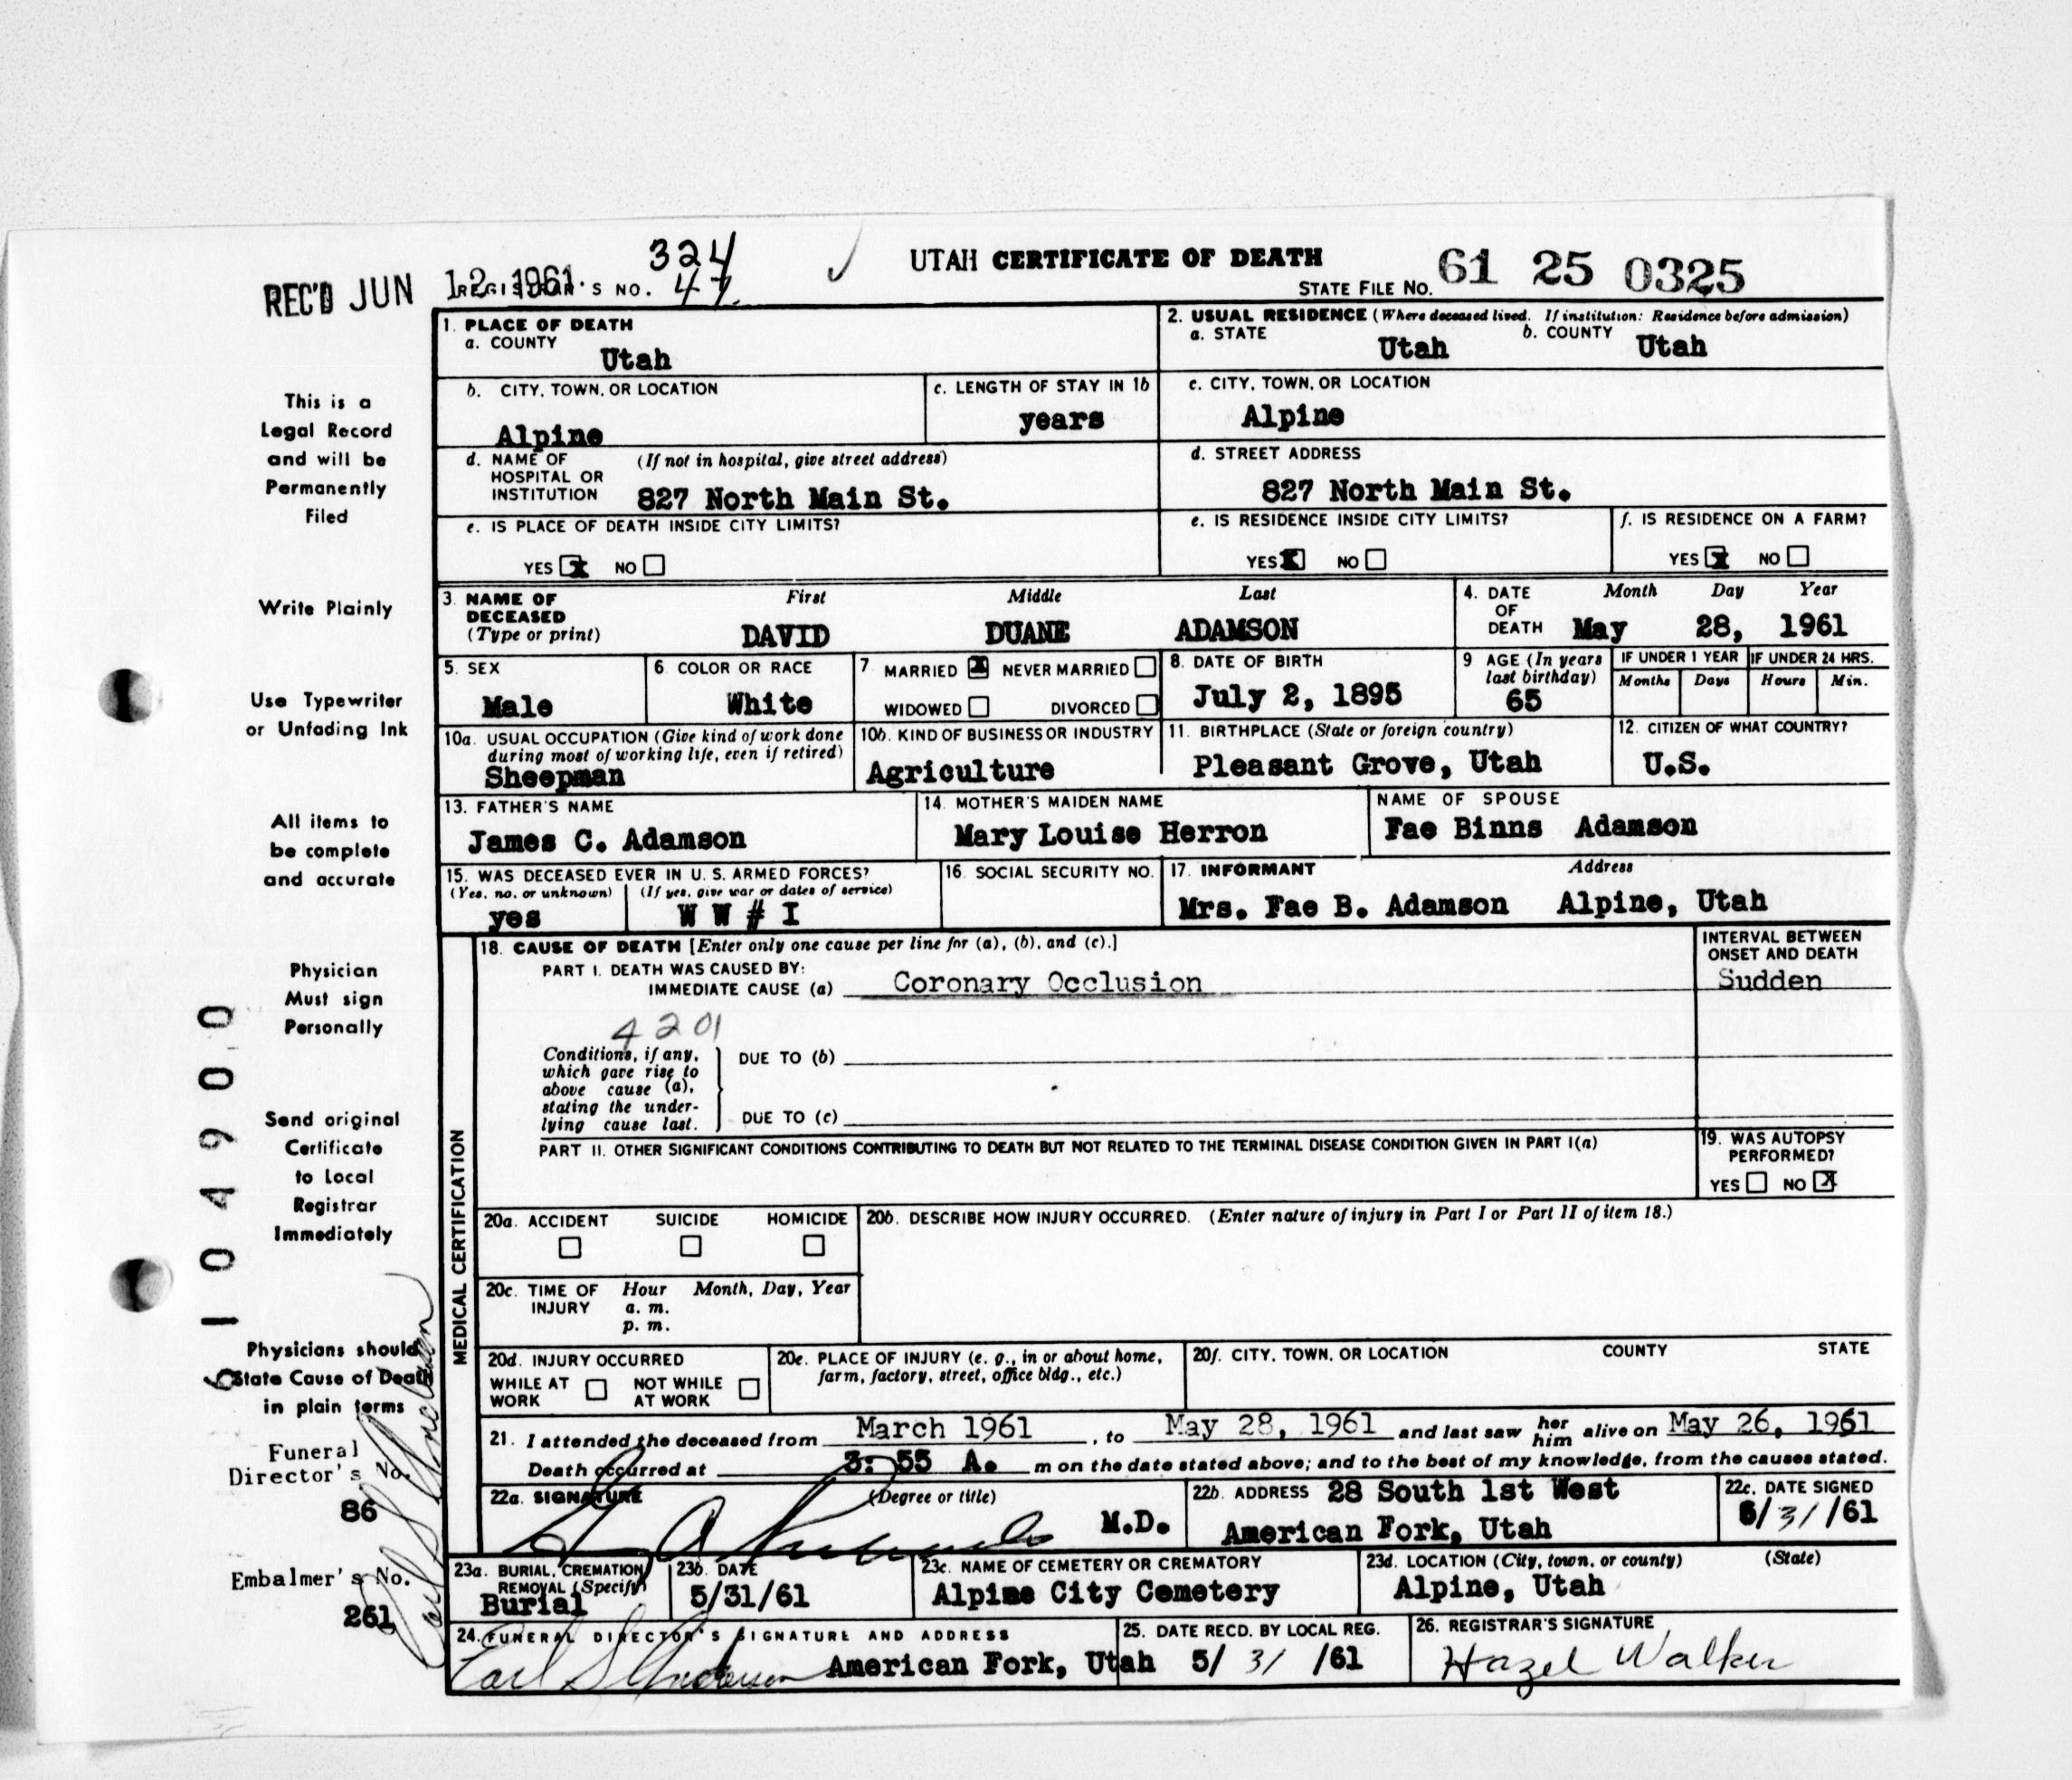 324
UTAH CERTIFICATE OF DEATH
REC'D JUN 12 1961
REGISTRAR'S NO. 47
STATE FILE NO. 61 25 0325
1. PLACE OF DEATH
a. COUNTY
Utah
2. USUAL RESIDENCE (Where deceased lived. If institution: Residence before admission)
a. STATE Utah b. COUNTY Utah
b. CITY, TOWN, OR LOCATION
Alpine
c. LENGTH OF STAY IN 1b
years
c. CITY, TOWN, OR LOCATION
Alpine
d. NAME OF HOSPITAL OR INSTITUTION (If not in hospital, give street address)
827 North Main St.
d. STREET ADDRESS
827 North Main St.
e. IS PLACE OF DEATH INSIDE CITY LIMITS?
YES x NO
e. IS RESIDENCE INSIDE CITY LIMITS?
YES x NO
f. IS RESIDENCE ON A FARM?
YES x NO
3. NAME OF DECEASED (Type or print)
First Middle Last
DAVID DUANE ADAMSON
4. DATE OF DEATH
Month Day Year
May 28, 1961
5. SEX
Male
6. COLOR OR RACE
White
7 MARRIED x NEVER MARRIED
WIDOWED DIVORCED
8. DATE OF BIRTH
July 2, 1895
9 AGE (In years last birthday)
65
IF UNDER 1 YEAR
Months Days
IF UNDER 24 HRS.
Hours Min.
10a. USUAL OCCUPATION (Give kind of work done during most of working life, even if retired)
Sheepman
10b. KIND OF BUSINESS OR INDUSTRY
Agriculture
11. BIRTHPLACE (State or foreign country)
Pleasant Grove, Utah
12. CITIZEN OF WHAT COUNTRY?
U.S.
13. FATHER'S NAME
James C. Adamson
14. MOTHER'S MAIDEN NAME
Mary Louise Herron
NAME OF SPOUSE
Fae Binns Adamson
15. WAS DECEASED EVER IN U. S. ARMED FORCES?
(Yes, no, or unknown) (If yes, give war or dates of service)
yes W W # I
16. SOCIAL SECURITY NO.
17. INFORMANT Address
Mrs. Fae B. Adamson Alpine, Utah
MEDICAL CERTIFICATION
18. CAUSE OF DEATH [Enter only one cause per line for (a), (b), and (c).]
PART I. DEATH WAS CAUSED BY:
IMMEDIATE CAUSE (a) Coronary Occlusion
INTERVAL BETWEEN ONSET AND DEATH
Sudden
4201
Conditions, if any, which gave rise to above cause (a), stating the underlying cause last.
DUE TO (b)
DUE TO (c)
PART II. OTHER SIGNIFICANT CONDITIONS CONTRIBUTING TO DEATH BUT NOT RELATED TO THE TERMINAL DISEASE CONDITION GIVEN IN PART I(a)
19. WAS AUTOPSY PERFORMED?
YES NO X
20a. ACCIDENT SUICIDE HOMICIDE
20b. DESCRIBE HOW INJURY OCCURRED. (Enter nature of injury in Part I or Part II of item 18.)
20c. TIME OF INJURY Hour Month, Day, Year
a. m.
p. m.
20d. INJURY OCCURRED
WHILE AT WORK NOT WHILE AT WORK
20e. PLACE OF INJURY (e. g., in or about home, farm, factory, street, office bldg., etc.)
20f. CITY, TOWN, OR LOCATION COUNTY STATE
21. I attended the deceased from March 1961, to May 28, 1961 and last saw her him alive on May 26, 1961
Death occurred at 3:55 A. m on the date stated above; and to the best of my knowledge, from the causes stated.
22a. SIGNATURE (Degree or title)
M.D.
22b. ADDRESS 28 South 1st West
American Fork, Utah
22c. DATE SIGNED
5/31/61
23a. BURIAL, CREMATION, REMOVAL (Specify)
Burial
23b. DATE
5/31/61
23c. NAME OF CEMETERY OR CREMATORY
Alpine City Cemetery
23d. LOCATION (City, town, or county) (State)
Alpine, Utah
24. FUNERAL DIRECTOR'S SIGNATURE AND ADDRESS
Earl S Anderson American Fork, Utah
25. DATE RECD. BY LOCAL REG.
5/31/61
26. REGISTRAR'S SIGNATURE
Hazel Walker
This is a
Legal Record
and will be
Permanently
Filed
Write Plainly
Use Typewriter
or Unfading Ink
All items to
be complete
and accurate
Physician
Must sign
Personally
Send original
Certificate
to Local
Registrar
Immediately
Physicians should
State Cause of Death
in plain terms
Funeral
Director's No.
86
Embalmer's No.
261
Earl S Anderson
6104900